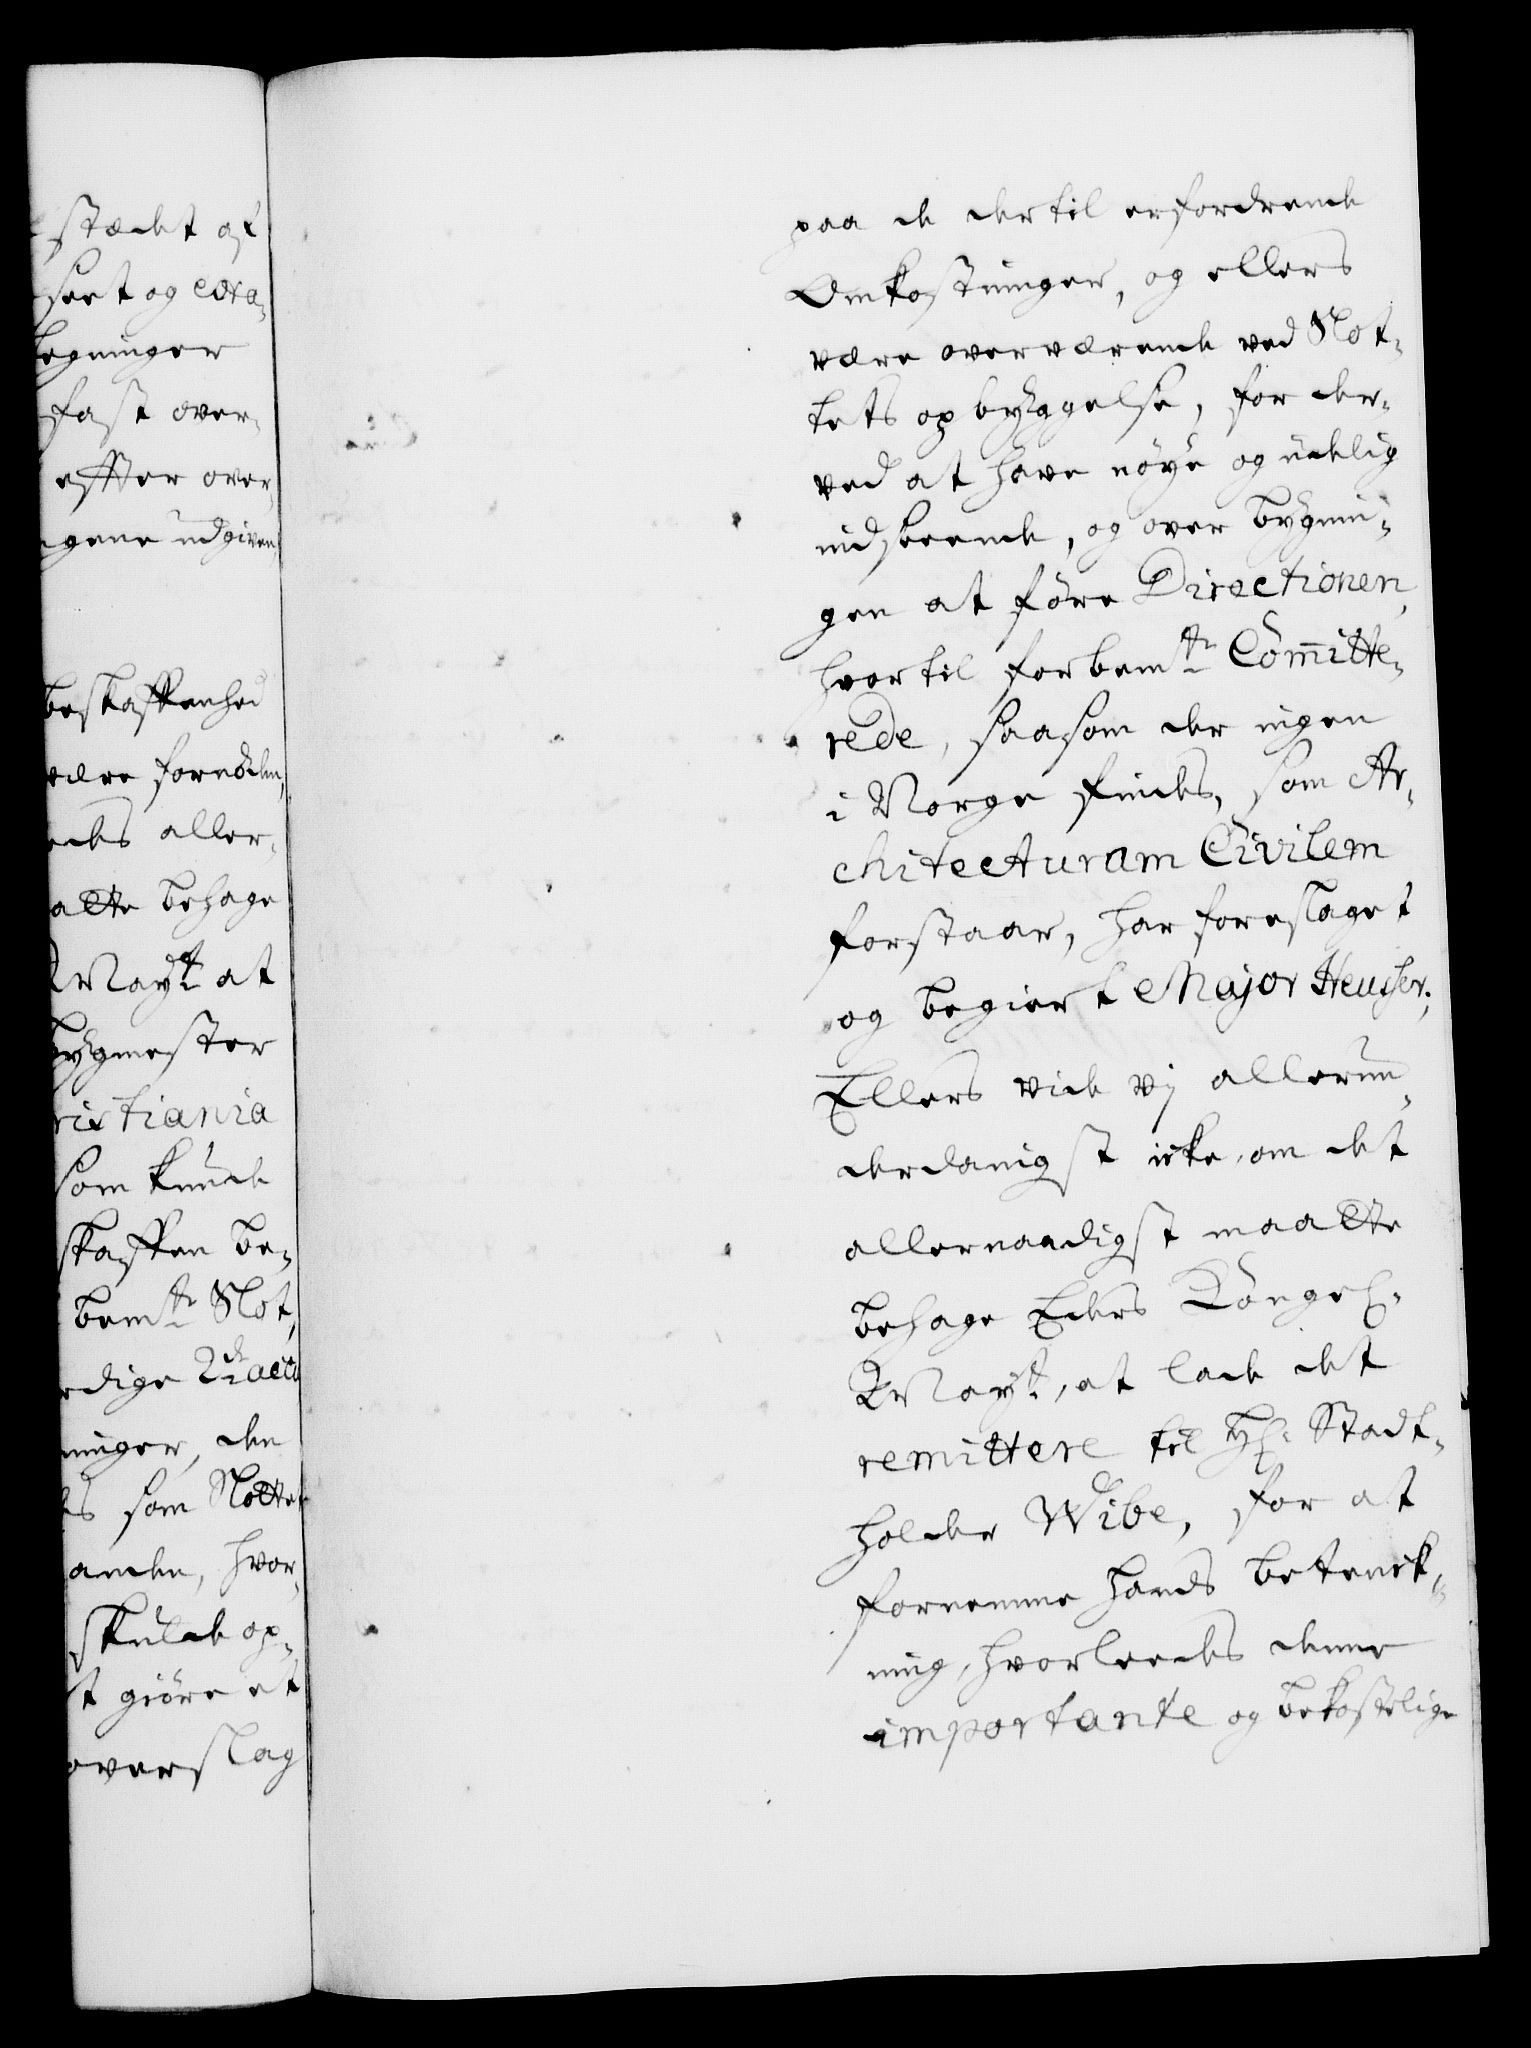 stædet af
seet og extra-
legninger
fast over-
effter over-
gene udgiven
beskaffenhed
være fornøden,
edes aller-
aatte behage
Mayt at
bygmester
ristiania
som kunde
skaffen be-
bemte Slot,
rdige
ninger, den
som Slotte
anden, hvor-
skulde op-
t giöre et
overslag
paa de dertil erfordrende
Omkostninger, og ellers
være overværende ved Slot-
tets opbyggelse, for der-
ved at have nöye og idelig
indseende, og over bygnin-
gen at före Directionen,
hvortil forbemte Com̄itte-
rede, saasom der ingen
i Norge findes, som Ar-
chitecturam Civilem
forstaar, har foreslaget
og begiert Major Heusser;
Ellers vide vj allerun-
derdanigst icke, om det
allernaadigst maatte
behage Eders Kongel:
Mayt, at lade det
remittere til Hr: Stadt-
holder Wibe, for at
fornemme hands betenck-
ning, hvorleedes denne
importante og bekostelige